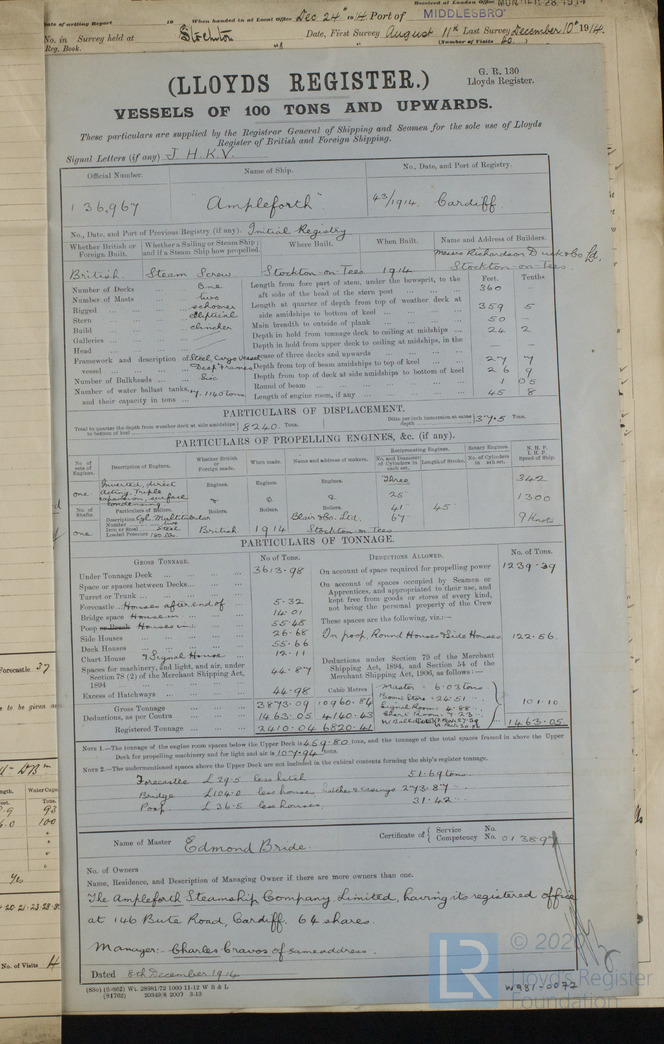 When handed in at Local Office Dec 24th 1914 Port of MIDDLESBRO'
No. in Survey held at Stockton Date, First Survey August 11th Last Survey December 10th 1914.
Reg. Book. (Number of Visits 60)
(LLOYDS REGISTER.)
G. R. 130
Lloyds Register.
VESSELS OF 100 TONS AND UPWARDS.
These particulars are supplied by the Registrar General of Shipping and Seamen for the sole use of Lloyds
Register of British and Foreign Shipping.
Signal Letters (if any) J H K V.
Official Number. Name of Ship. No., Date, and Port of Registry.
136,967 "Ampleforth" 43/1914. Cardiff
No., Date, and Port of Previous Registry (if any). Initial Registry
Whether British or Foreign Built. Whether a Sailing or Steam Ship; and if a Steam Ship how propelled. Where Built. When Built. Name and Address of Builders.
British Steam Screw Stockton-on-Tees 1914 Messrs Richardson Duck & Co Ld. Stockton-on-Tees.
Feet. Tenths
Number of Decks One
Number of Masts two
Rigged schooner
Stern Elliptical
Build clincher
Galleries
Head
Framework and description of vessel Steel, Cargo vessel Deep Frames
Number of Bulkheads Six
Number of water ballast tanks, and their capacity in tons 7. 1140 tons
Length from fore part of stem, under the bowsprit, to the aft side of the head of the stern post 360
Length at quarter of depth from top of weather deck at side amidships to bottom of keel 359 5
Main breadth to outside of plank 50 –
Depth in hold from tonnage deck to ceiling at midships 24 2
Depth in hold from upper deck to ceiling at midships, in the case of three decks and upwards – –
Depth from top of beam amidships to top of keel 27 7
Depth from top of deck at side amidships to bottom of keel 26 9
Round of beam 1 05
Length of engine room, if any 45 8
PARTICULARS OF DISPLACEMENT.
Total to quarter the depth from weather deck at side amidships to bottom of keel 8240 Tons. Ditto per inch immersion at same depth 37.5 Tons.
PARTICULARS OF PROPELLING ENGINES, &c. (if any).
No. of sets of Engines. Description of Engines. Whether British or Foreign made. When made. Name and address of makers. Reciprocating Engines. Rotary Engines. N. H. P. I. H. P. Speed of Ship.
No. and Diameter of Cylinders in each set. Length of Stroke. No. of Cylinders in each set.
one Inverted, direct acting, Triple expansion, surface condensing
Engines. Engines. Engines. Three 342
25 1300
No. of Shafts. Particulars of Boilers. Boilers. Boilers. Boilers. 41 45
Description Cyl. Multitubular Blair & Co. Ltd. 67 9 Knots
Number two
one Iron or Steel Steel British 1914 Stockton on Tees
Loaded Pressure 180 lbs.
PARTICULARS OF TONNAGE.
GROSS TONNAGE. No. of Tons. DEDUCTIONS ALLOWED. No. of Tons.
Under Tonnage Deck 3613.98
Space or spaces between Decks
Turret or Trunk
Forecastle Houses after end of 5.32
Bridge space House in 14.01
Poop Houses in 55.45
Side Houses 26.68
Deck Houses 55.66
Chart House & Signal House 12.11
Spaces for machinery, and light, and air, under Section 78 (2) of the Merchant Shipping Act, 1894 44.87
Excess of Hatchways 44.98
Gross Tonnage 3873.09 10960.84
Deductions, as per Contra 1463.05 4140.43
Registered Tonnage 2410.04 6820.41
Cubic Metres
On account of space required for propelling power 1239.39
On account of spaces occupied by Seamen or Apprentices, and appropriated to their use, and kept free from goods or stores of every kind, not being the personal property of the Crew
These spaces are the following, viz.:—
In poop, Round House & Side Houses 122.56.
Deductions under Section 79 of the Merchant Shipping Act, 1894, and Section 54 of the Merchant Shipping Act, 1906, as follows:—
Master 6.03 tons
Signal Room 4.88
Chart Room 7.23
101.10
1463.05
NOTE 1.—The tonnage of the engine room spaces below the Upper Deck is 459.80 tons, and the tonnage of the total spaces framed in above the Upper
Deck for propelling machinery and for light and air is 107.94 tons.
NOTE 2.—The undermentioned spaces above the Upper Deck are not included in the cubical contents forming the ship's register tonnage.
Forecastle L 29.5 less hatch 51.69 tons
Bridge L 104.0 less house hatches & casings 273.87
Poop L 36.5 less houses 31.42
Name of Master Edmond Bride. Certificate of Service No. Competency No. 013897
No. of Owners
Name, Residence, and Description of Managing Owner if there are more owners than one.
The Ampleforth Steamship Company, Limited, having its registered office
at 146 Bute Road, Cardiff. 64 shares.
Manager:- Charles Cravos of same address.
Dated 8th December 1914
W981-0072
No. of Visits
Lloyd's Register
Foundation
LR